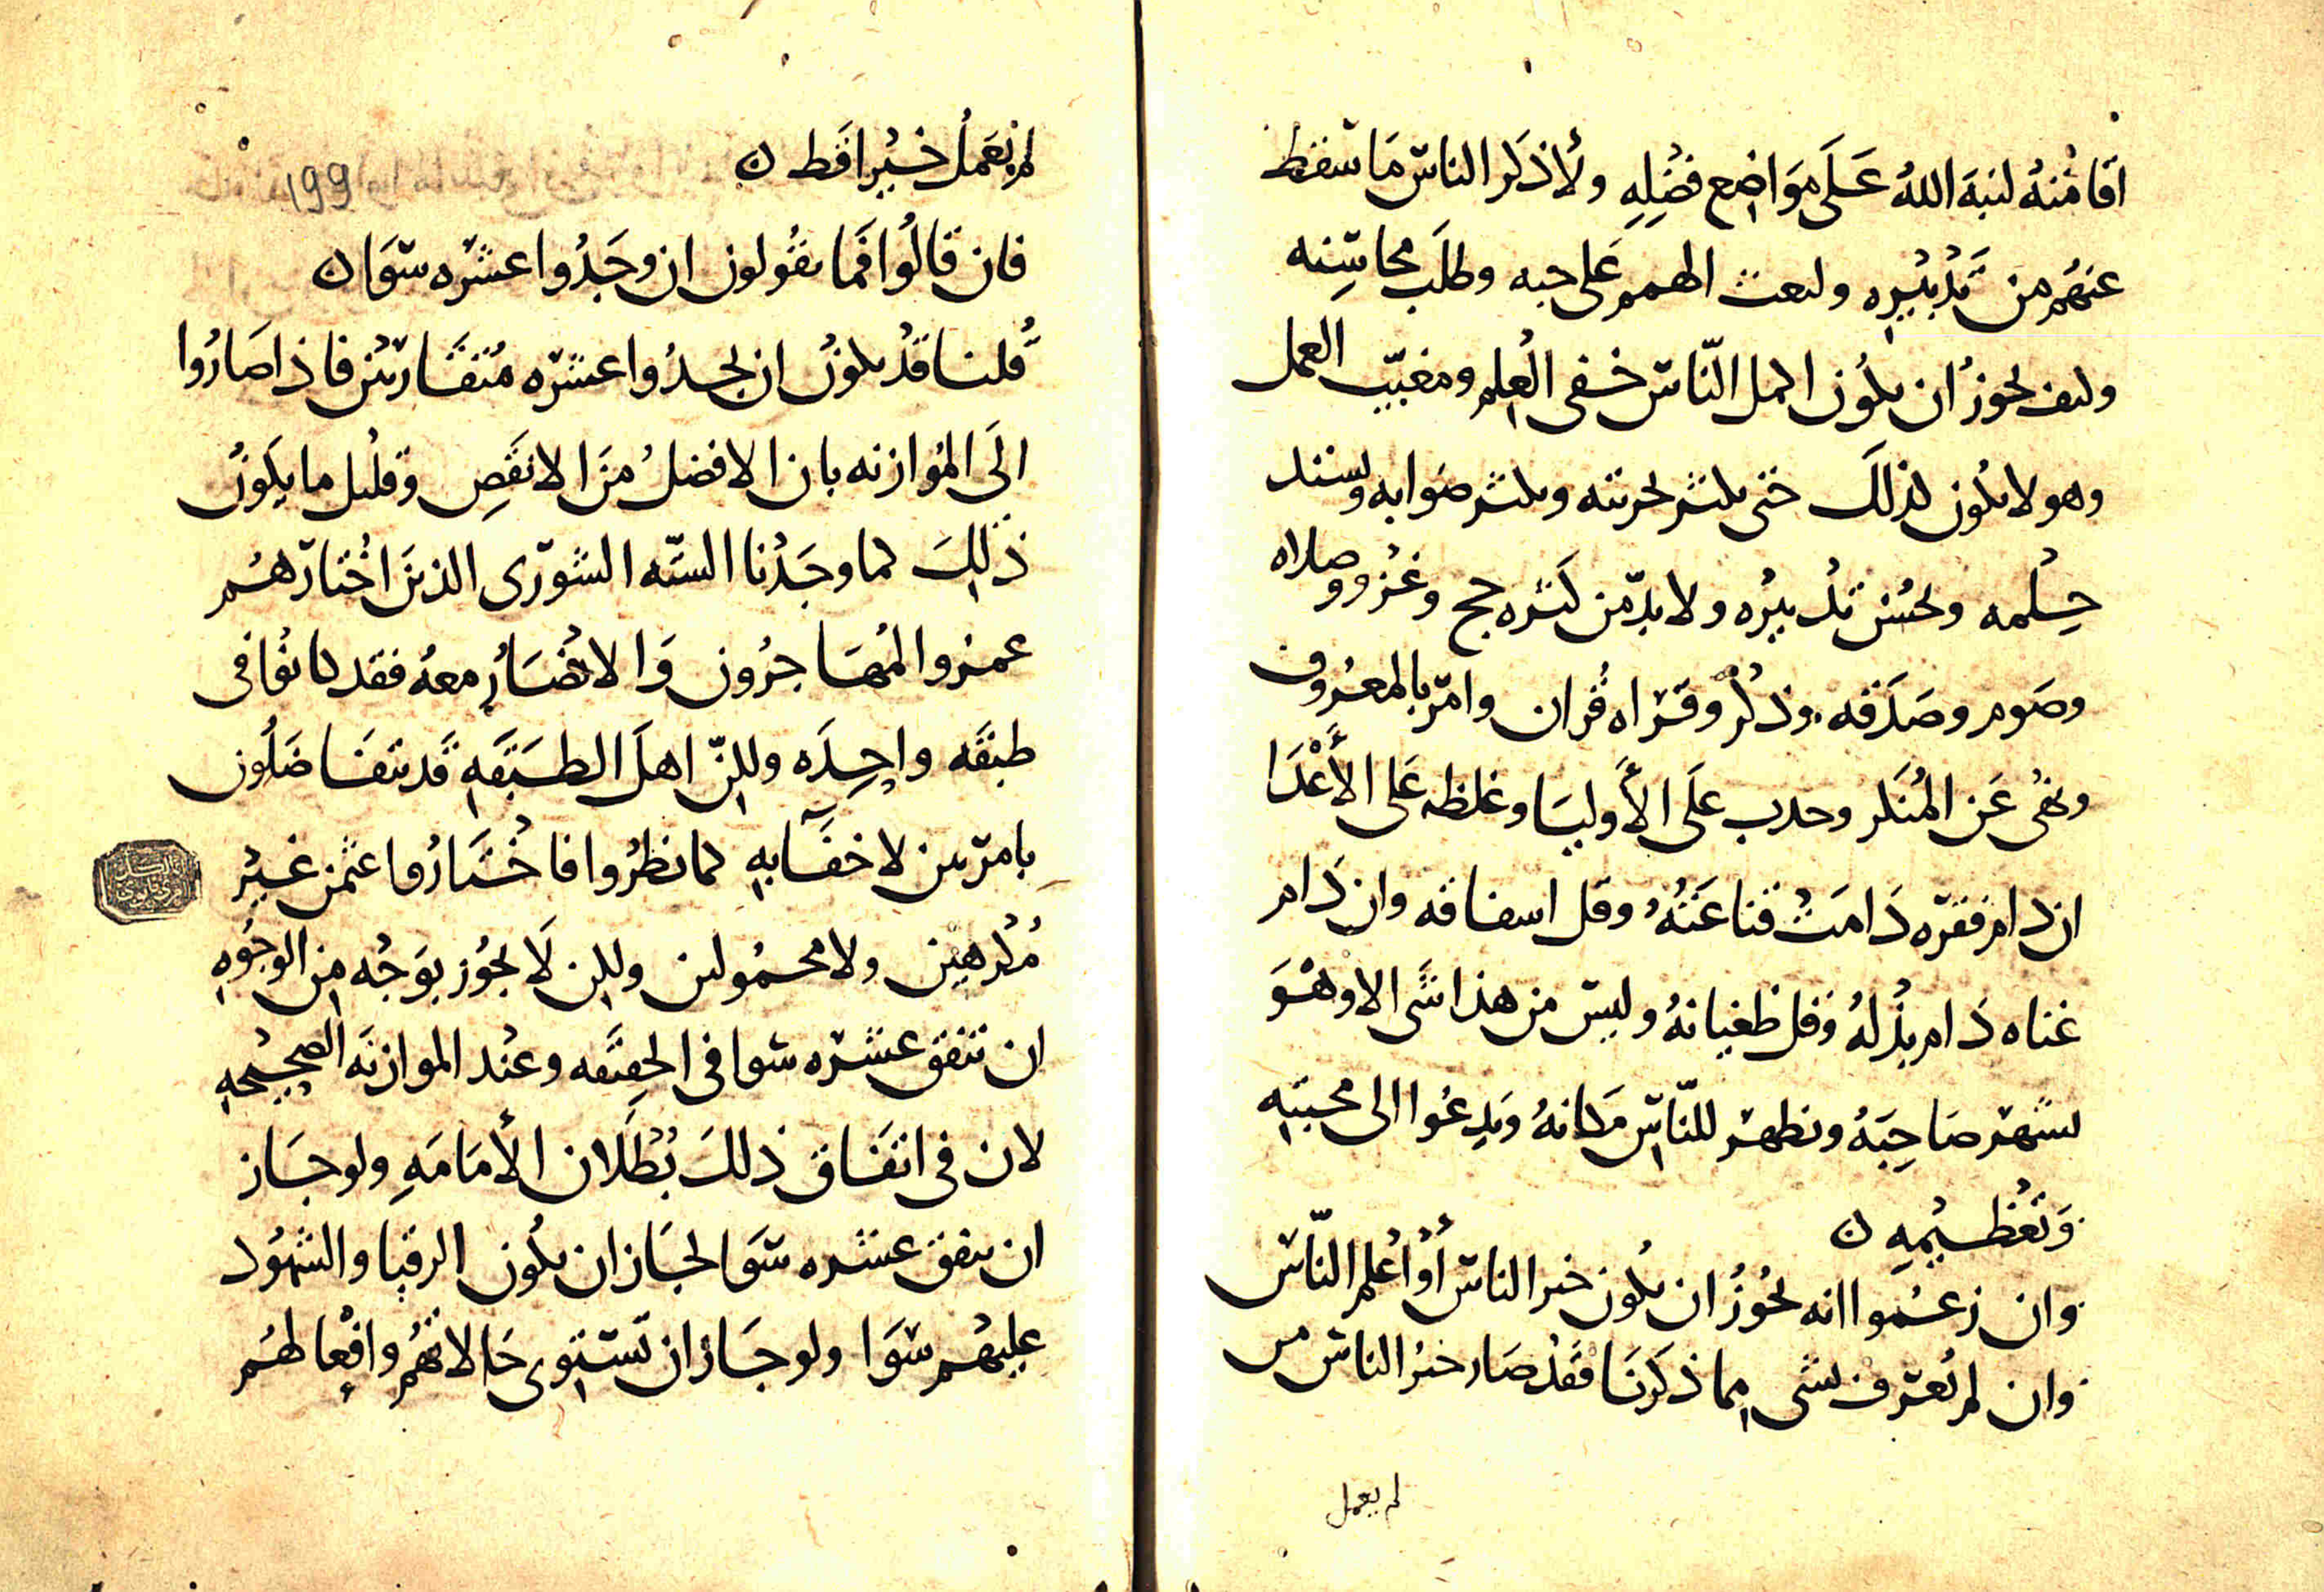 افامنه لنبه الله على مواضع فضله ولأذكر الناس ما سقط
عنهم من تدبيره ولبعث الهمم على حبه وطلب محاسنه
وكيف يجوز ان يكون اكمل الناس خفي العلم ومغيب العمل
وهو لا يكون كذلك حتى يكثر تجربته ويكثر صوابه ويشتد
حلمه ويحسن تدبيره ولا بد من كثره حج وغزو وصلاه
وصوم وصدقه وذكر وقراه قران وامر بالمعروف
ونهى عن المنكر وحدب على الأوليا وغلظه على الأعدا
ان دام فقره دامت قناعته وقل اسفافه وان دام
غناه دام بذله وقل طغيانه وليس من هذا شى الا وهو
يشهر صاحبه ويظهر للناس مكانه ويدعوا الى محبته
وتعظيمه ن
وان زعموا انه يجوز ان يكون خير الناس أو أعلم الناس
وان لم يعرف بشى مما ذكرنا فقد صار خير الناس من
لم يعمل
لم يعمل خيرا قط ن
199
فان قالوا فما تقولون ان وجدوا عشره سوا ن
قلنا قد يكون ان يجدوا عشره متقاربين فاذا صاروا
الى الموازنه بان الافضل من الانقص وقليل ما يكون
ذلك كما وجدنا السته الشورى الذين اختارهم
عمر والمهاجرون والانصار معه فقد كانوا فى
طبقه واحده ولكن اهل الطبقه قد يتفاضلون
بامر بين لا خفا به كما نظروا فاختاروا عثمن غير
مكرهين ولا محمولين ولكن لا يجوز بوجه من الوجوه
ان تتفق عشره سوا فى الحقيقه وعند الموازنه الصحيحه
لان فى اتفاق ذلك بطلان الأمامه ولو جاز
ان يتفق عشره سوا لجاز ان يكون الرقبا والشهود
عليهم سوا ولو جاز ان تستوى حالاتهم وافعالهم